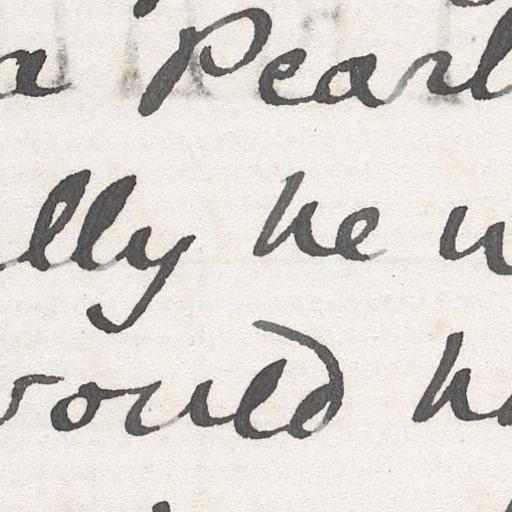 a Pearl
lly he w
would ha